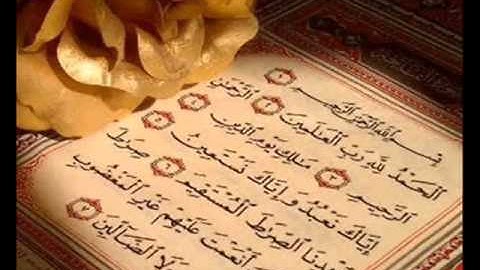 بِسْمِ ٱللَّهِ ٱلرَّحْمَٰنِ ٱلرَّحِيمِ ١
ٱلْحَمْدُ لِلَّهِ رَبِّ ٱلْعَٰلَمِينَ ٢ ٱلرَّحْمَٰنِ
ٱلرَّحِيمِ ٣ مَٰلِكِ يَوْمِ ٱلدِّينِ ٤
إِيَّاكَ نَعْبُدُ وَإِيَّاكَ نَسْتَعِينُ ٥
ٱهْدِنَا ٱلصِّرَٰطَ ٱلْمُسْتَقِيمَ ٦ صِرَٰطَ
أَنْعَمْتَ عَلَيْهِمْ غَيْرِ ٱلْمَغْضُوبِ
لَا ٱلضَّآلِّينَ ٧